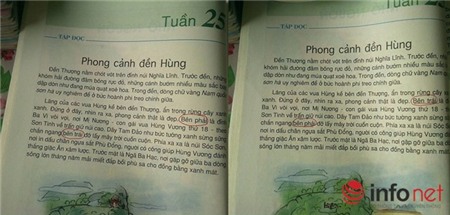 Tuần 25
TẬP ĐỌC
Phong cảnh đền Hùng
Đền Thượng nằm chót vót trên đỉnh núi Nghĩa Lĩnh. Trước đền, những
khóm hải đường đâm bông rực đỏ, những cánh bướm nhiều màu sắc
dập dờn như đang múa quạt xoè hoa. Trong đền, dòng chữ vàng Nam quốc
sơn hà uy nghiêm đề ở bức hoành phi treo chính giữa.
Lăng của các vua Hùng kề bên đền Thượng, ẩn trong rừng cây
xanh. Đứng ở đây, nhìn ra xa, phong cảnh thật là đẹp. Bên phải là
Ba Vì vòi vọi, nơi Mị Nương - con gái vua Hùng Vương thứ 18 -
Sơn Tinh về trấn giữ núi cao. Dãy Tam Đảo như bức tường xanh sừng
chắn ngang bên trái đỡ lấy mây trời cuồn cuộn. Phía xa xa là núi Sóc
nơi in dấu chân ngựa sắt Phù Đổng, người có công giúp Hùng Vương đánh
thắng giặc Ân xâm lược. Trước mặt là Ngã Ba Hạc, nơi gặp gỡ giữa ba dòng
sông lớn tháng năm mải miết đắp bồi phù sa cho đồng bằng xanh mát.
Tuần 25
TẬP ĐỌC
Phong cảnh đền Hùng
Đền Thượng nằm chót vót trên đỉnh núi Nghĩa Lĩnh. Trước đền, những
khóm hải đường đâm bông rực đỏ, những cánh bướm nhiều màu sắc bay
dập dờn như đang múa quạt xoè hoa. Trong đền, dòng chữ vàng Nam quốc
sơn hà uy nghiêm đề ở bức hoành phi treo chính giữa.
Lăng của các vua Hùng kề bên đền Thượng, ẩn trong rừng cây xanh
xanh. Đứng ở đây, nhìn ra xa, phong cảnh thật là đẹp. Bên là đỉnh
Ba Vì vòi vọi, nơi Mị Nương - con gái vua Hùng Vương thứ 18 - theo
Sơn Tinh về trấn giữ núi cao. Dãy Tam Đảo như bức tường xanh sừng sững
chắn ngang bên phải đỡ lấy mây trời cuồn cuộn. Phía xa xa là núi Sóc Sơn
nơi in dấu chân ngựa sắt Phù Đổng, người có công giúp Hùng Vương đánh
thắng giặc Ân xâm lược. Trước mặt là Ngã Ba Hạc, nơi gặp gỡ giữa ba dòng
sông lớn tháng năm mải miết đắp bồi phù sa cho đồng bằng xanh mát.
infonet